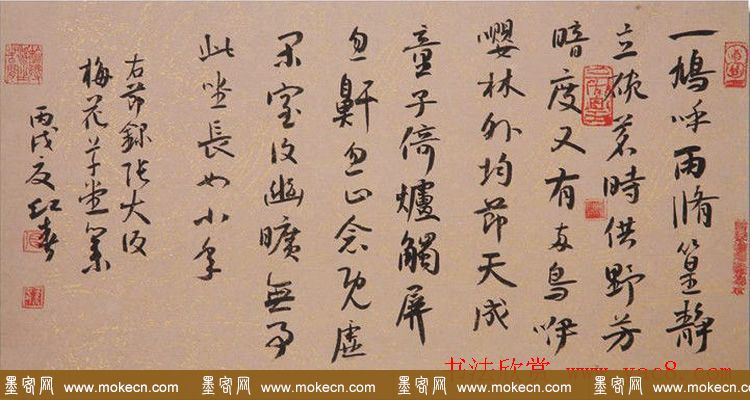 一鳩呼雨脩篁靜
立碗茗時供野芳
暗度又有两鳥咿
嚶林外均節天成
童子倚爐觸屏
忽鼾忽止念既虛
閑室復幽曠無事
此坐長如小年
右節録張大復
梅花草堂筆
丙戌夏紅春
书法欣赏 www.yac8.com
墨客网 www.mokecn.com 墨客网 www.mokecn.com 墨客网 www.mokecn.com 墨客网 www.mokecn.com